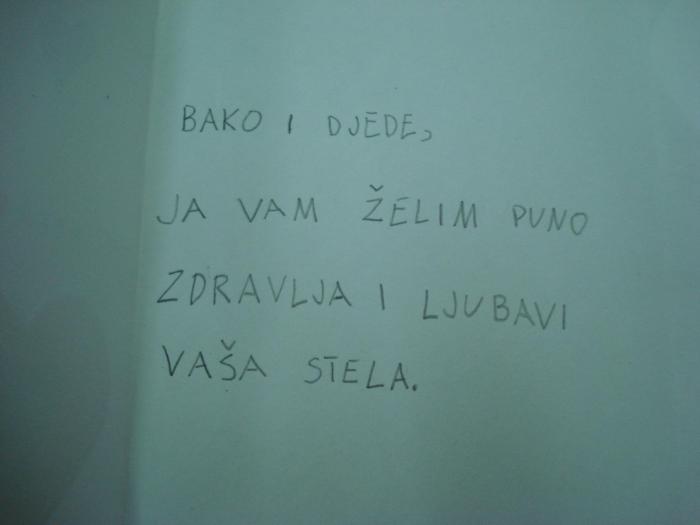 BAKO I DJEDE,
JA VAM ŽELIM PUNO
ZDRAVLJA I LJUBAVI
VAŠA STELA.